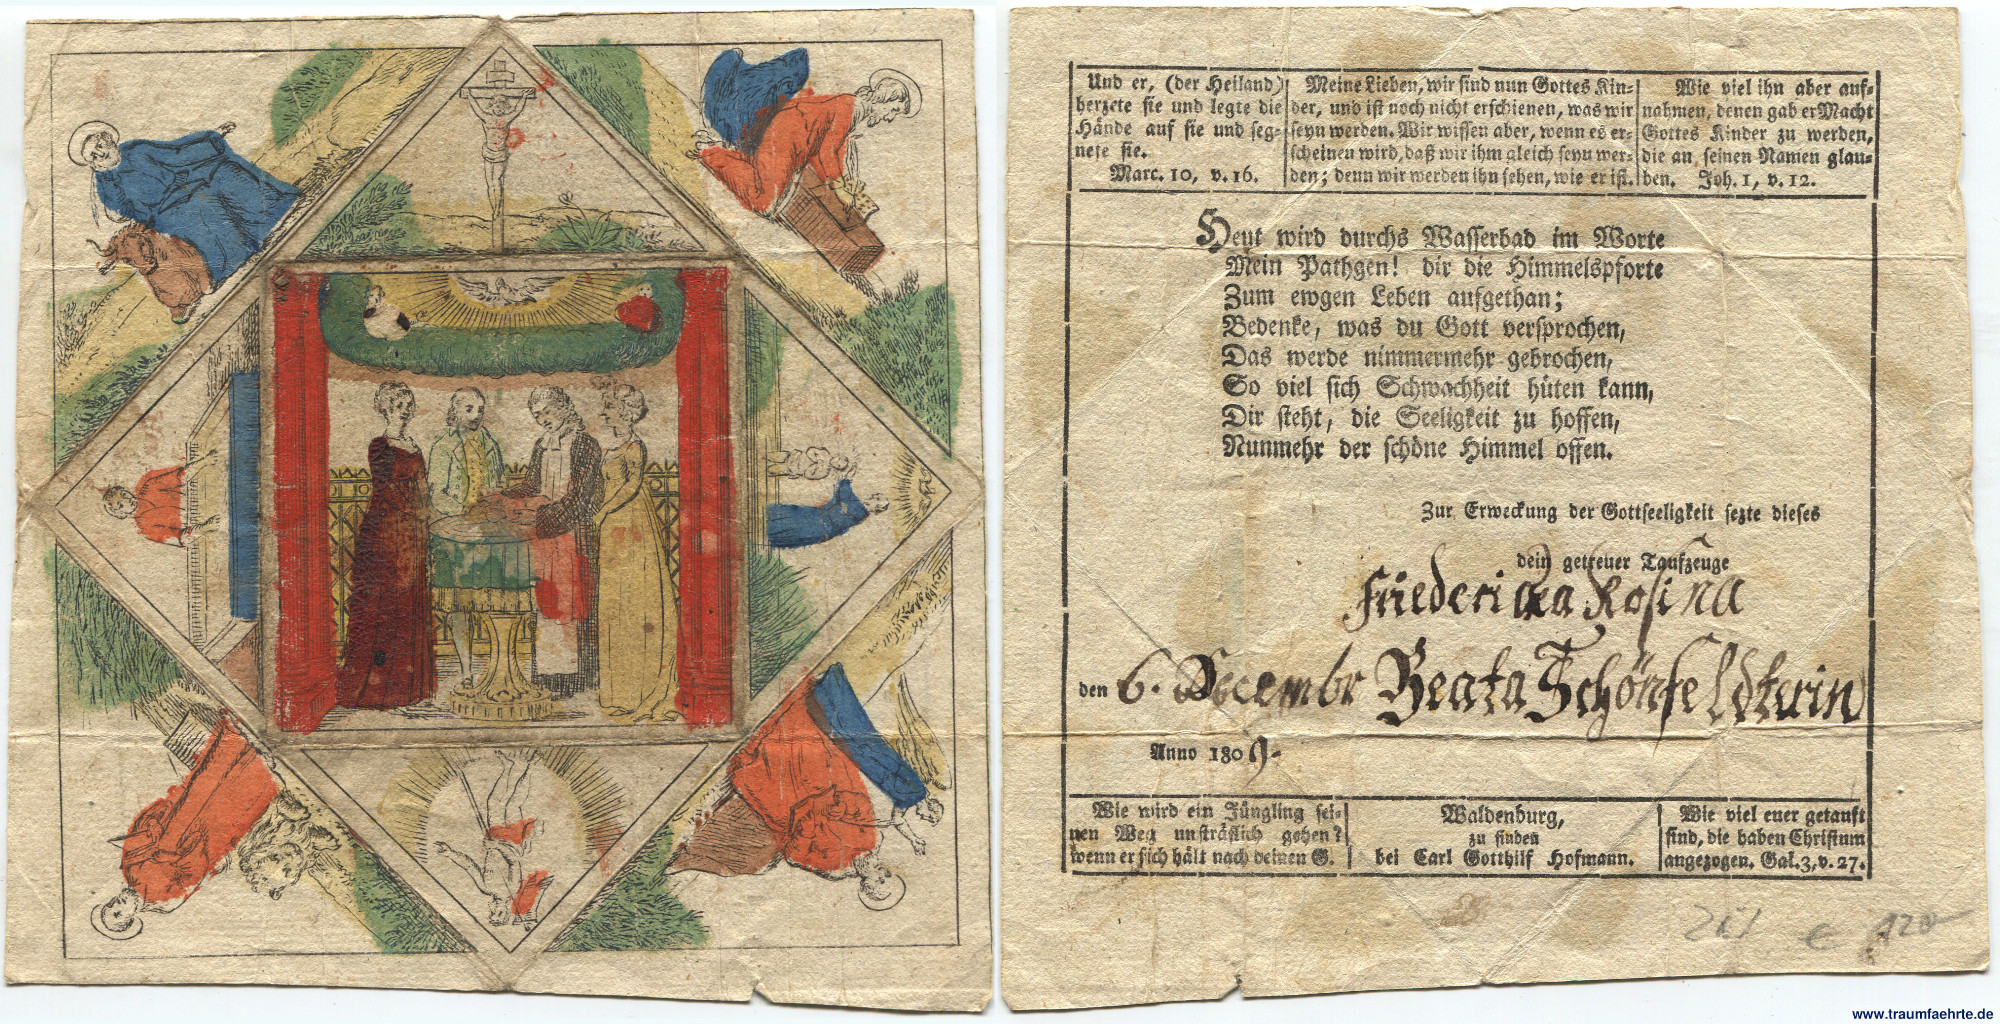 Und er, (der Heiland)
herzete sie und legte die
Hände auf sie und seg-
nete sie.
Marc. 10, v. 16.
Meine Lieben, wir sind nun Gottes Kin-
der, und ist noch nicht erschienen, was wir
seyn werden. Wir wissen aber, wenn es er-
scheinen wird, daß wir ihm gleich seyn wer-
den; denn wir werden ihn sehen, wie er ist.
Wie viel ihn aber auf-
nahmen, denen gab er Macht
Gottes Kinder zu werden,
die an seinen Namen glau-
ben. Joh. 1, v. 12.
Heut wird durchs Wasserbad im Worte
Mein Pathgen! dir die Himmelspforte
Zum ewgen Leben aufgethan;
Bedenke, was du Gott versprochen,
Das werde nimmermehr gebrochen,
So viel sich Schwachheit hüten kann,
Dir steht, die Seeligkeit zu hoffen,
Nunmehr der schöne Himmel offen.
Zur Erweckung der Gottseeligkeit sezte dieses
dein getreuer Taufzeuge
Friedericka Rosina
den 6. Decembr Beata Schönfeldterin
Anno 1809.
Wie wird ein Jüngling sei-
nen Weg unsträflich gehen?
wenn er sich hält nach deinen G.
Waldenburg,
zu finden
bei Carl Gotthilf Hofmann.
Wie viel euer getauft
sind, die haben Christum
angezogen. Gal. 3, v. 27.
€ 120
www.traumfaehrte.de